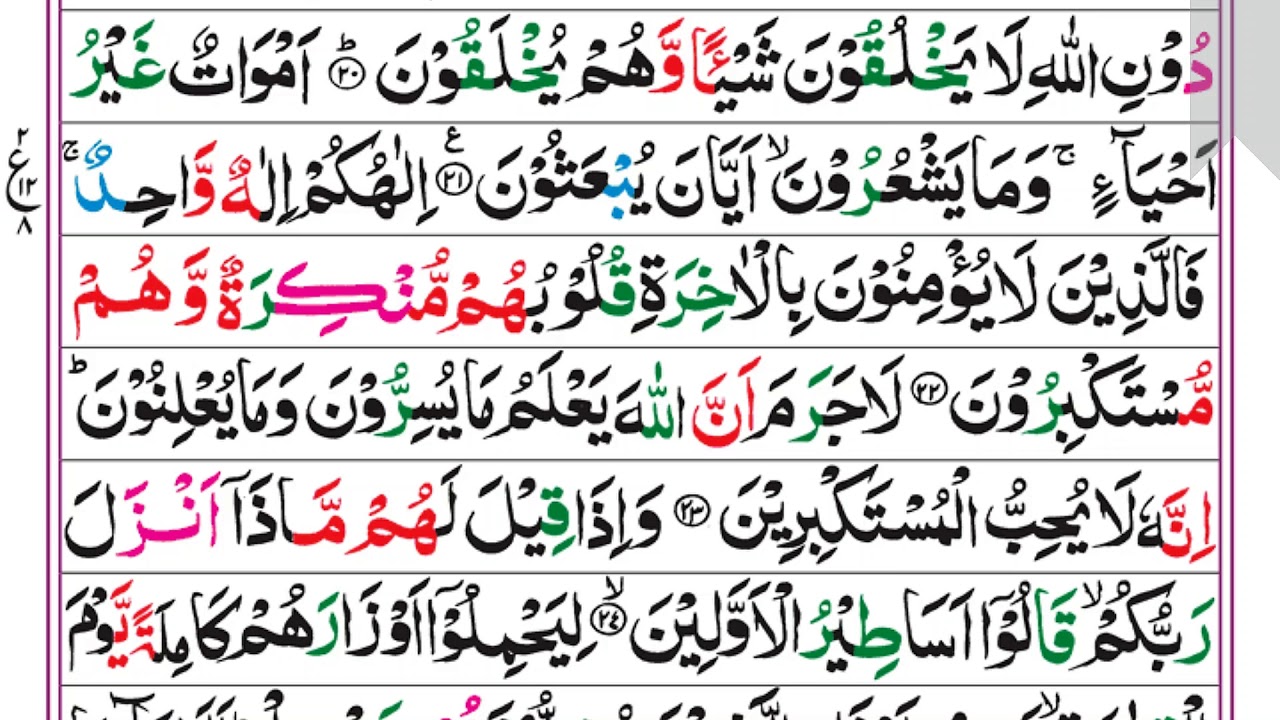 دُوْنِ اللّٰهِ لَا يَخْلُقُوْنَ شَيْـًٔا وَّهُمْ يُخْلَقُوْنَ ؕ ۝٢٠ اَمْوَاتٌ غَيْرُ
اَحْيَآءٍ ۚ وَمَا يَشْعُرُوْنَ ۙ اَيَّانَ يُبْعَثُوْنَ ۝٢١ ع اِلٰهُكُمْ اِلٰهٌ وَّاحِدٌ ۚ
٢ ع ١٢ ٨
فَالَّذِيْنَ لَا يُؤْمِنُوْنَ بِالْاٰخِرَةِ قُلُوْبُهُمْ مُّنْكِرَةٌ وَّهُمْ
مُّسْتَكْبِرُوْنَ ۝٢٢ لَا جَرَمَ اَنَّ اللّٰهَ يَعْلَمُ مَا يُسِرُّوْنَ وَمَا يُعْلِنُوْنَ ؕ
اِنَّهٗ لَا يُحِبُّ الْمُسْتَكْبِرِيْنَ ۝٢٣ وَاِذَا قِيْلَ لَهُمْ مَّاذَآ اَنْزَلَ
رَبُّكُمْ ۙ قَالُوْٓا اَسَاطِيْرُ الْاَوَّلِيْنَ ۙ ۝٢٤ لِيَحْمِلُوْٓا اَوْزَارَهُمْ كَامِلَةً يَّوْمَ